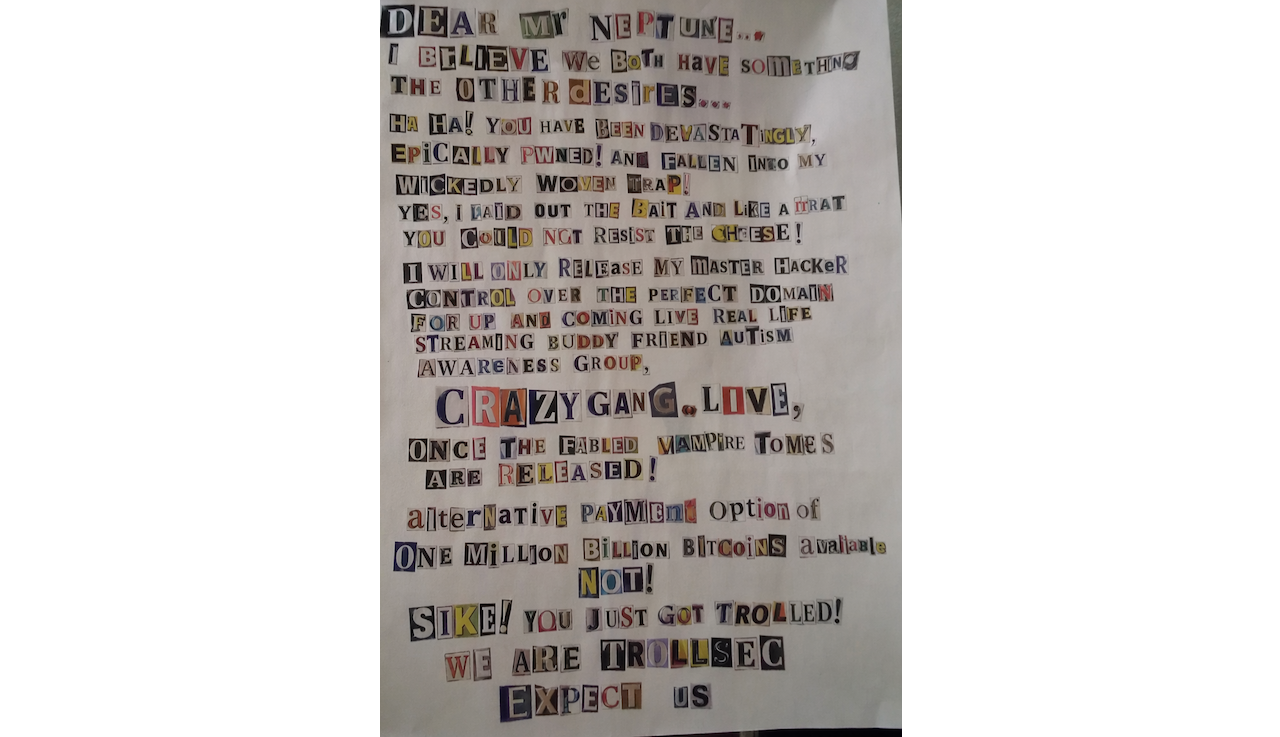 DEAR Mr NEPTUNE...
I BELIEVE We BOTH HAVE SOMETHING
THE OTHER dESIrES...
HA HA! YOU HAVE BEEN DEVASTATINGLY,
EPiCALLY PWNED! AND FALLEN INTO MY
WICKEDLY WOVEN TRAP!
YES, i LAID OUT THE BAiT AND LiKE A
YOU COULD NOT RESiST THE CHEESE!
I WILL ONLY RELEaSE MY mASTER HACKeR
CONTROL OVER THE PERFECT DOMAIN
FOR UP AND COMiNG LIVE REAL LIFE
STREAMING BUDDY FRiEND AUTiSM
AWAReNESS GROUP,
CRAZYGANG.LIVE,
ONCE THE FABLED VAMPiRE TOMeS
ARE RELEASED!
alterNATiVE PAYMEnt Option of
ONE MiLLION BiLLION BITCOINS available
NOT!
SIKE! YOU JUST GOT TROLLED!
WE ARE TROLLSEC
EXPECT US